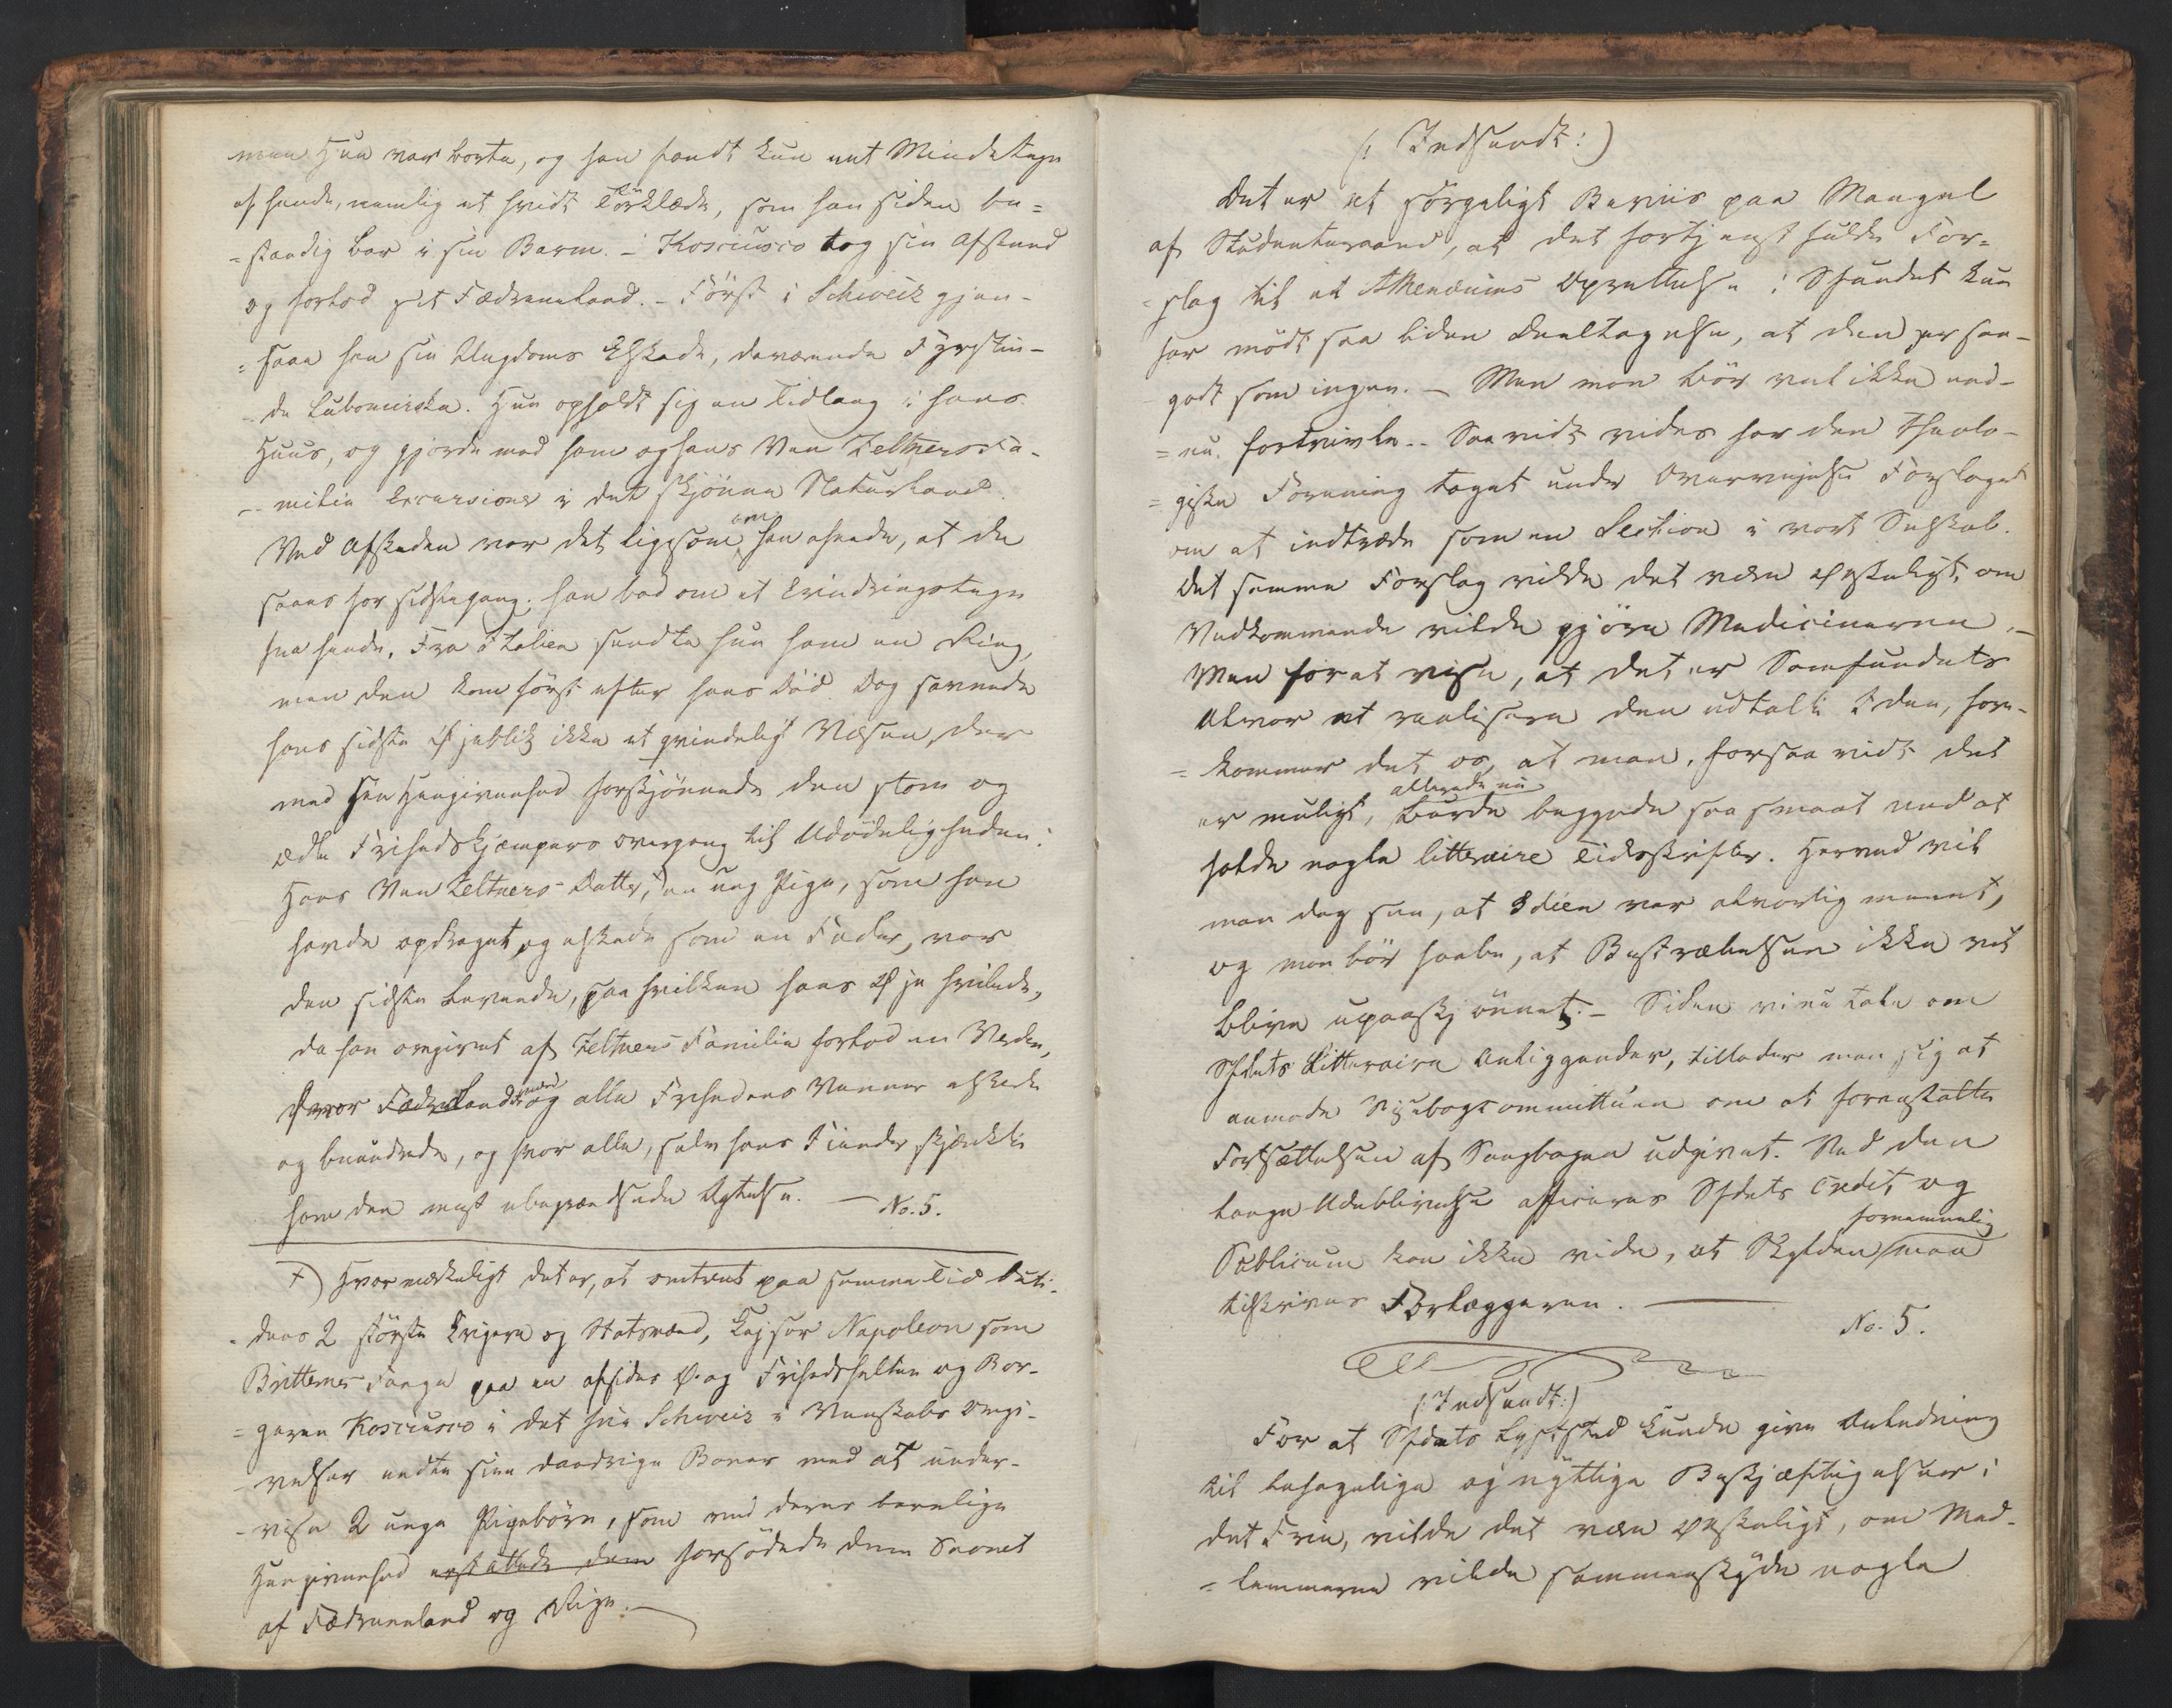 men Hun var borte, og han fandt kun eet Mindetegn
af hende, nemlig et hvidt Törklæde, som han siden be=
=standig bar i sin Barm. – Kosciusco tog sin Afskeed
og forlod sit Fædreneland. – Först i Schweiz gjen-
=saae han sin Ungdoms Elskede, daværende Fyrstin-
-de Lubomirska. Hun opholdt sig en Tidlang i hans
Huus, og gjorde med ham og hans Ven Zeltners Fa-
-milie Excursioner i det skjönne Naturland.
Ved Afskeden var det ligesom om han ahnede, at de
saaes for sidstegang; han bad om et Erindringstegn
fra hende. Fra Italien sendte hun ham en Ring,
men den kom först efter hans Död. Dog savnede
hans sidste Öjeblik ikke et qvindeligt Væsen, der
med sin Hengivenhed forskjönnede den store og
ædle Frihedskjæmpers Overgang til Udödeligheden:
Hans Ven Zeltners Datter, en ung Pige, som han
havde opdraget, og elskede som en Fader, var
den sidste Levende, paa hvilken hans Öje hvilede,
da han omgivet af Zeltners Familie forlod en Verden,
hvor Fædrelandet og alle Frihedens Venner elskede
og beundrede, og hvor alle, selv hans Fiender skjænkte
ham den meest ubegrændsede Agtelse. — No. 5.
+) Hvor mærkeligt det er, at omtrent paa samme Tid Ti-
-dens 2 störste Krigere og Statsmænd, Keyser Napoleon som
Britternes Fange paa en afsides Ö og Frihedshelten og Bor-
=geren Kosciusco i det frie Schweiz i Venskabs Omgi-
-velser endte sine daadrige Baner med at under-
-vise 2 unge Pigebörn, som ved deres barnlige
Hengivenhed erstattede dem forsödede dem Savnet
af Fædreneland og Rige. —
(: Indsendt :)
Det er et sörgeligt Beviis paa Mangel
af Studenteraand, at det fortjenstfulde For=
=slag til et Athenæums Oprettelse i Sfundet kun
har mödt saa liden Deeltagelse, at den er saa-
godt som ingen. — Men man bör vel ikke end-
=nu fortvivle. – Saavidt vides har den theolo-
=giske Forening taget under Overvejelse Forslaget
om at indtræde som en Section i vort Selskab.
Det samme Forslag vilde det være önskeligt, om
Vedkommende vilde gjöre Medicinerne. –
Men for at vise, at det er Samfundets
Alvor at realisere den udtalte Idee, fore-
=kommer det os, at man, forsaavidt det
er muligt, allerede nu burde begynde saa smaat ved at
holde nogle litteraire Tidsskrifter. Herved vil
man dog see, at Ideen var alvorlig meent,
og man bör haabe, at Bestræbelsen ikke vil
blive upaaskjönnet. – Siden vi nu tale om
Sfdets litteraire Anliggender, tillader man sig at
anmode Visebogscommitteen om at foranstalte
Fortsættelsen af Sangbogen udgivet. Ved den
lange Udeblivelse afficeres Sfdets Credit, og
Publicum kan ikke vide, at Skylden fornemmelig maa
tilskrives Forlæggeren. —
No. 5.
(: Indsendt :)
For at Sfdets Lyststed kunde give Anledning
til behagelige og nyttige Beskjæftigelser i
det Frie, vilde det være önskeligt, om Med-
=lemmerne vilde sammenskyde nogle